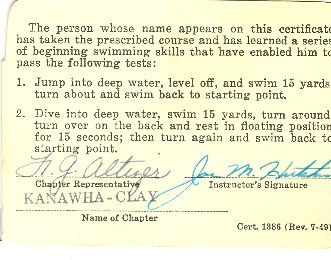 The person whose name appears on this certificate
has taken the prescribed course and has learned a series
of beginning swimming skills that have enabled him to
pass the following tests:
1. Jump into deep water, level off, and swim 15 yards
turn about and swim back to starting point.
2. Dive into deep water, swim 15 yards, turn around
turn over on the back and rest in floating position
for 15 seconds; then turn again and swim back to
starting point.
Chapter Representative Instructor's Signature
KANAWHA-CLAY
Name of Chapter
Cert. 1386 (Rev. 7-49)